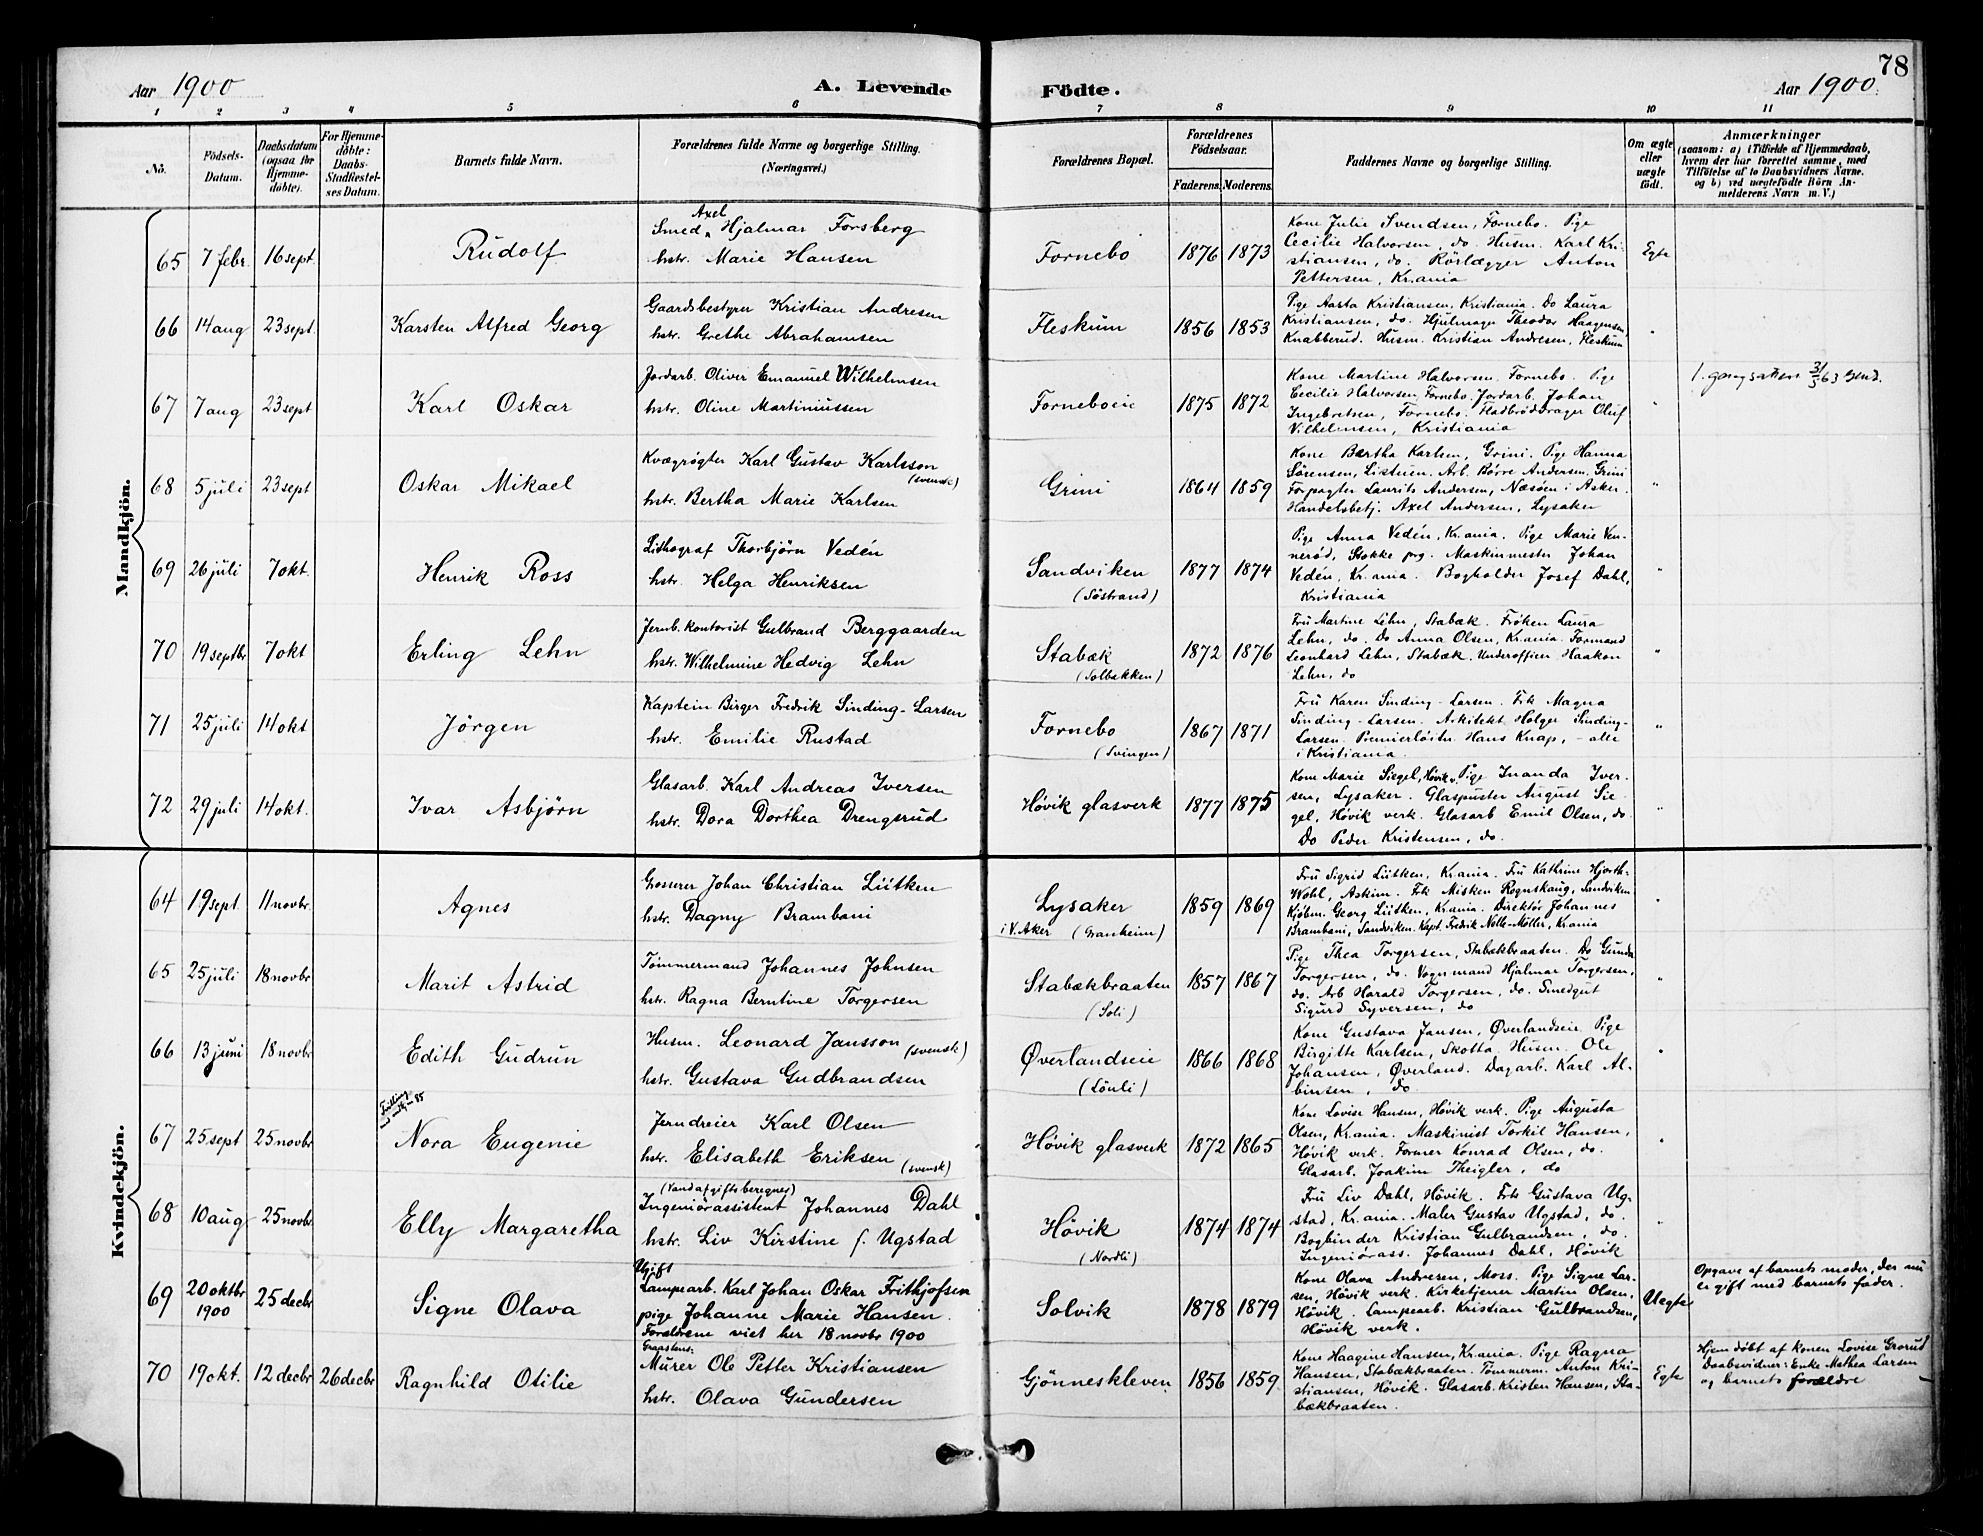 78
Aar 1900
A. Levende Födte.
Aar 1900
1 2 3 4 5 6 7 8 9 10 11
No.
Födsels-
Datum.
Daabsdatum
(ogsaa for
Hjemme-
döbte).
For Hjemme-
döbte:
Daabs-
Stadfæstel-
ses Datum.
Barnets fulde Navn.
Forældrenes fulde Navne og borgerlige Stilling.
(Næringsvei.)
Forældrenes Bopæl.
Forældrenes
Födselsaar.
Faderens. Moderens.
Faddernes Navne og borgerlige Stilling.
Om ægte
eller
uægte
födt.
Anmærkninger
(saasom: a) i Tilfælde af Hjemmedaab,
hvem der har forrettet samme, med
Tilföielse af to Daabsvidners Navne.
og b) ved uægtefödte Börn An-
melderens Navn m. V.)
Mandkjön.
65 7 febr. 16 sept. Rudolf
Axel
Smed Hjalmar Forsberg
hstr. Marie Hansen
Fornebo 1876 1873
Kone Julie Svendsen, Fornebo. Pige
Cecilie Halvorsen, do. Husm. Karl Kri-
stiansen, do. Rörlægger Anton
Pettersen, Kr.ania
Egte
66 14 aug 23 sept. Karsten Alfred Georg
Gaardsbestyrer Kristian Andresen
hstr. Grethe Abrahamsen
Fleskum 1856 1853
Pige Aasta Kristiansen, Kristiania. Do Laura
Kristiansen, do. Hjulmager Theodor Haagensen,
Knabberud. Husm. Kristian Andresen, Fleskum
"
67 7 aug 23 sept Karl Oskar
Jordarb. Oliver Emanuel Wilhelmsen
hstr. Oline Martiniussen
Forneboeie 1875 1872
Kone Martine Halvorsen, Fornebo. Pige
Cecilie Halvorsen, Fornebo. Jordarb. Johan
Ingebretsen, Fornebo. Fladbrödbrager Oluf
Vilhelmsen, Kristiania
"
68 5 juli 23 sept Oskar Mikael
Kvægrögter Karl Gustav Karlsson
(svensk)
hstr. Bertha Marie Karlsen
Grini 1864 1859
Kone Bertha Karlsen, Grini. Pige Hanna
Sörensen, Listuen. Arb. Börre Andersen, Grini
Forpagter Laurits Andersen, Næsöen i Asker.
Handelsbetj. Axel Andersen, Lysaker
"
69 26 juli 7 okt. Henrik Ross
Lithograf Thorbjörn Vedén
hstr. Helga Henriksen
Sandviken
(Söstrand)
1877 1874
Pige Anna Vedén, Kr.ania. Pige Marie Ven-
neröd, Stokke prg. Maskinmester Johan
Vedén, Kr.ania. Bogholder Josef Dahl,
Kristiania
"
70 19 septbr 7 okt Erling Lehn
Jernb. kontorist Gulbrand Berggaarden
hstr. Wilhelmine Hedvig Lehn
Stabæk
(Solbakken)
1872 1876
Fru Martine Lehn, Stabæk. Fröken Laura
Lehn, do. Do Anna Olsen, Kr.ania. Formand
Leonhard Lehn, Stabæk. Underofficer Haakon
Lehn, do
"
71 25 juli 14 okt Jörgen
Kaptein Birger Fredrik Sinding-Larsen
hstr. Emilie Rustad
Fornebo
(Svingen)
1867 1871
Fru Karen Sinding-Larsen. Frk Magna
Sinding-Larsen. Arkitekt Holger Sinding-
Larsen. Premierlöitn. Hans Knap, - alle
i Kristiania.
"
72 29 juli 14 okt. Ivar Asbjörn
Glasarb. Karl Andreas Iversen
hstr. Dora Dorthea Drengsrud
Hövik glasverk 1877 1875
Kone Marie Siegel, Hövik v. Pige Inanda Iver-
sen, Lysaker. Glaspuster August Sie-
gel, Hövik verk. Glasarb Emil Olsen, do.
Do Peder Kristensen, do.
"
Kvindekjön.
64 19 sept. 11 novbr. Agnes
Grosserer Johan Christian Lütken
hstr. Dagny Brambani
Lysaker
i V. Aker (Granheim)
1859 1869
Fru Sigrid Lütken, Kr.ania. Fru Kathrine Hjorth-
Wohl, Askim. Frk Misken Rognskaug, Sandviken
Kjöbm. Georg Lütken, Kr.ania. Direktör Johannes
Brambani, Sandviken. Kapt. Fredrik Nolte-Möller, Kr.ania
"
65 25 juli 18 novbr Marit Astrid
Tömmermand Johannes Johnsen
hstr. Ragna Berntine Torgersen
Stabækbraaten
(Soli)
1857 1867
Pige Thea Torgersen, Stabækbraaten. Do Gunda
Torgersen, do. Vognmand Hjalmar Torgersen,
do. Arb Harald Torgersen, do. Smedgut
Sigurd Syversen, do
"
66 13 juni 18 novbr Edith Gudrun
Husm. Leonard Jansson (svensk)
hstr. Gustava Gudbrandsen
Øverlandseie
(Lönli)
1866 1868
Kone Gustava Jansen, Øverlandseie. Pige
Birgitte Karlsen, Skotta. Husm. Ole
Johansen, Øverland. Dagarb. Karl Al-
binsen, do.
"
67 25 sept 25 novbr Nora Eugenie
Jerndreier Karl Olsen
hstr. Elisabeth Eriksen (svensk)
Hövik glasverk 1872 1865
Kone Lovise Hansen, Hövik verk. Pige Augusta
Olsen, Kr.ania. Maskinist Torkil Hansen,
Hövik verk. Former Konrad Olsen, do.
Glasarb. Joakim Theigler, do
"
68 10 aug 25 novbr. Elly Margaretha
(Vandafgiftsberegner)
Ingeniörassistent Johannes Dahl
hstr. Liv Kirstine f. Ugstad
Hövik
(Nordli)
1874 1874
Fru Liv Dahl, Hövik. Frk Gustava Ug-
stad, Kr.ania. Maler Gustav Ugstad, do.
Bogbinder Kristian Gulbrandsen, do.
Ingeniörass. Johannes Dahl, Hövik
"
69 20 oktbr
1900
25 decbr Signe Olava
Ugift
Lampearb. Karl Johan Oskar Frithjofsen
pige Johanne Marie Hansen.
Forældrene viet her 18 novbr 1900
Solvik 1878 1879
Kone Olava Andresen, Moss. Pige Signe Lar-
sen, Hövik verk. Kirketjener Martin Olsen,
Hövik. Lampearb. Kristian Gulbrandsen,
Hövik verk.
Uegte
Opgave af barnets moder, der nu
er gift med barnets fader.
70 19 okt. 12 decbr 26 decbr Ragnhild Otilie
Graastens:
Murer Ole Petter Kristiansen
hstr. Olava Gundersen
Gjönneskleven 1856 1859
Kone Haagine Hansen, Kr.ania. Pige Ragna
Hansen, Stabækbraaten. Tömmerm. Anton Kri-
stiansen, Hövik. Glasarb. Kristen Hansen, Sta-
bækbraaten.
Egte
Hjemdöbt af Konen Lovise Grorud
Daabsvidner: Enke Mathea Larsen
og barnets forældre